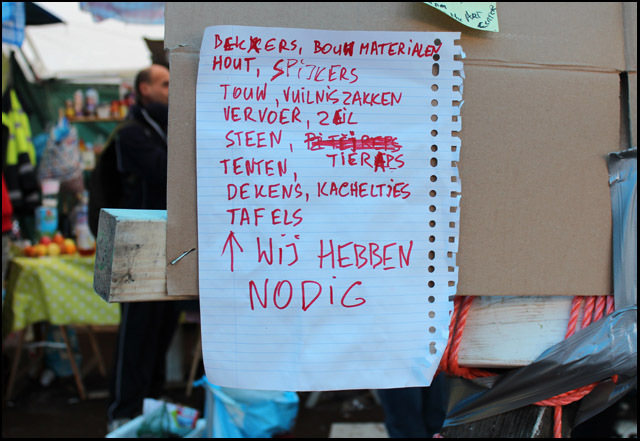 DEKKERS, BOUWMATERIALEN
HOUT, SPIJKERS
TOUW, VUILNISZAKKEN
VERVOER, ZEIL
STEEN,
TIERAPS
TENTEN,
DEKENS, KACHELTJES
TAFELS
↑ WIJ HEBBEN
NODIG